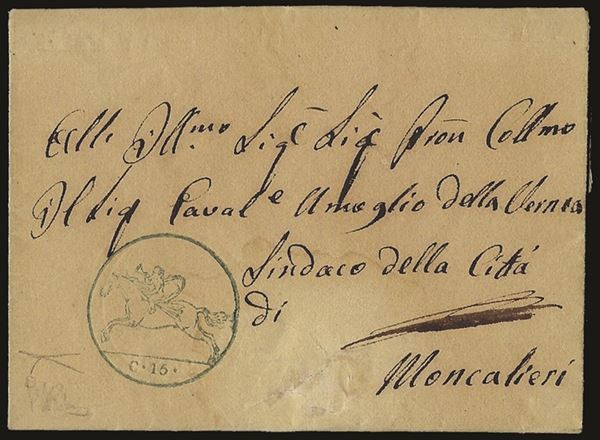 All. Ill.mo Sig.e Sig.e Pron Collmo
Il Sig Caval.e Ameglio della Vernea
Sindaco della Città
di
Moncalieri
C·15·